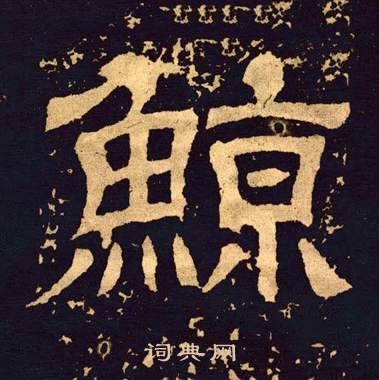 鯨
词典网